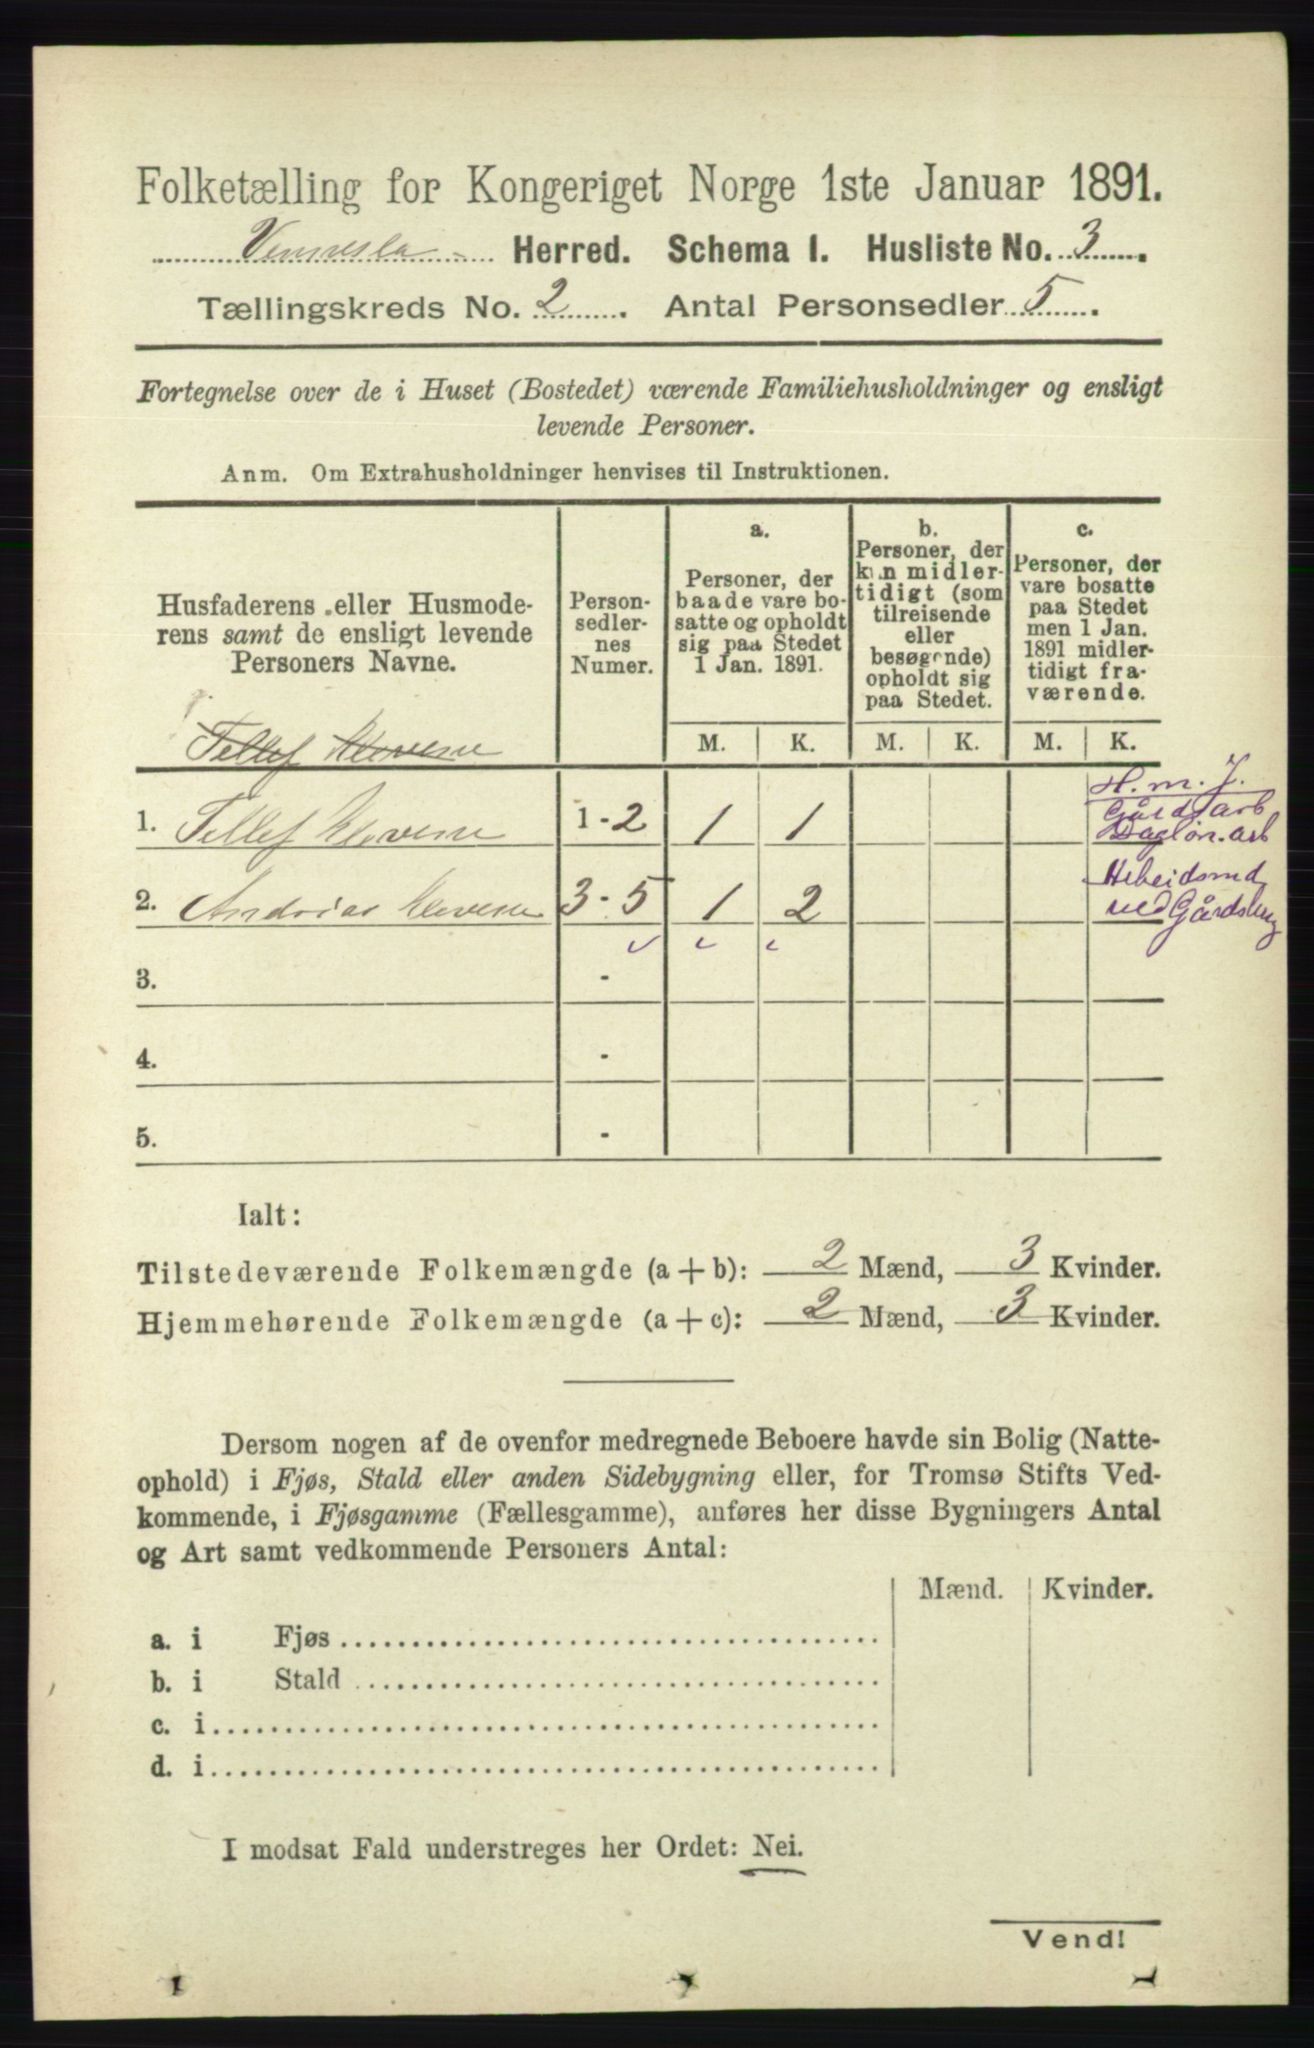 Folketælling for Kongeriget Norge 1ste Januar 1891.
Vennesla Herred. Schema I. Husliste No. 3
Tællingskreds No. 2. Antal Personsedler 5.
Fortegnelse over de i Huset (Bostedet) værende Familiehusholdninger og ensligt
levende Personer.
Anm. Om Extrahusholdninger henvises til Instruktionen.
Husfaderens eller Husmode-
rens samt de ensligt levende
Personers Navne.
Person-
sedler-
nes
Numer.
a.
Personer, der
baade vare bo-
satte og opholdt
sig paa Stedet
1 Jan. 1891.
b.
Personer, der
kun midler-
tidigt (som
tilreisende
eller
besøgende)
opholdt sig
paa Stedet.
c.
Personer, der
vare bosatte
paa Stedet
men 1 Jan.
1891 midler-
tidigt fra-
værende.
M. K. M. K. M. K.
Tellef Klevene
H. m. J.
Gårdsarb
Dagløn. arb
1. Tellef Klevene 1-2 1 1
Arbeidsmd
ved Gårdsbrug
2. Andreas Klevene 3-5 1 2
3. -
4. -
5. -
Ialt:
Tilstedeværende Folkemængde (a + b): 2 Mænd, 3 Kvinder.
Hjemmehørende Folkemængde (a + c): 2 Mænd, 3 Kvinder.
Dersom nogen af de ovenfor medregnede Beboere havde sin Bolig (Natte-
ophold) i Fjøs, Stald eller anden Sidebygning eller, for Tromsø Stifts Ved-
kommende, i Fjøsgamme (Fællesgamme), anføres her disse Bygningers Antal
og Art samt vedkommende Personers Antal:
Mænd. Kvinder.
a. i Fjøs
b. i Stald
c. i
d. i
I modsat Fald understreges her Ordet: Nei.
Vend!